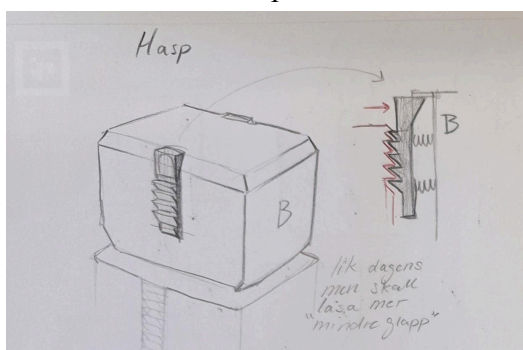 Hasp
B
B
lik dagens
men skall
låsa mer
"mindre glapp"